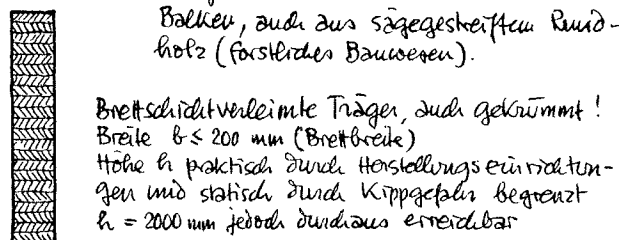 Balken, auch aus sägegestreiftem Rund-
holz (forstliches Bauwesen).
Brettschichtverleimte Träger, auch gekrümmt!
Breite b ≤ 200 mm (Brettbreite)
Höhe h praktisch durch Herstellungseinrichtun-
gen und statisch durch Kippgefahr begrenzt
h = 2000 mm jedoch durchaus erreichbar